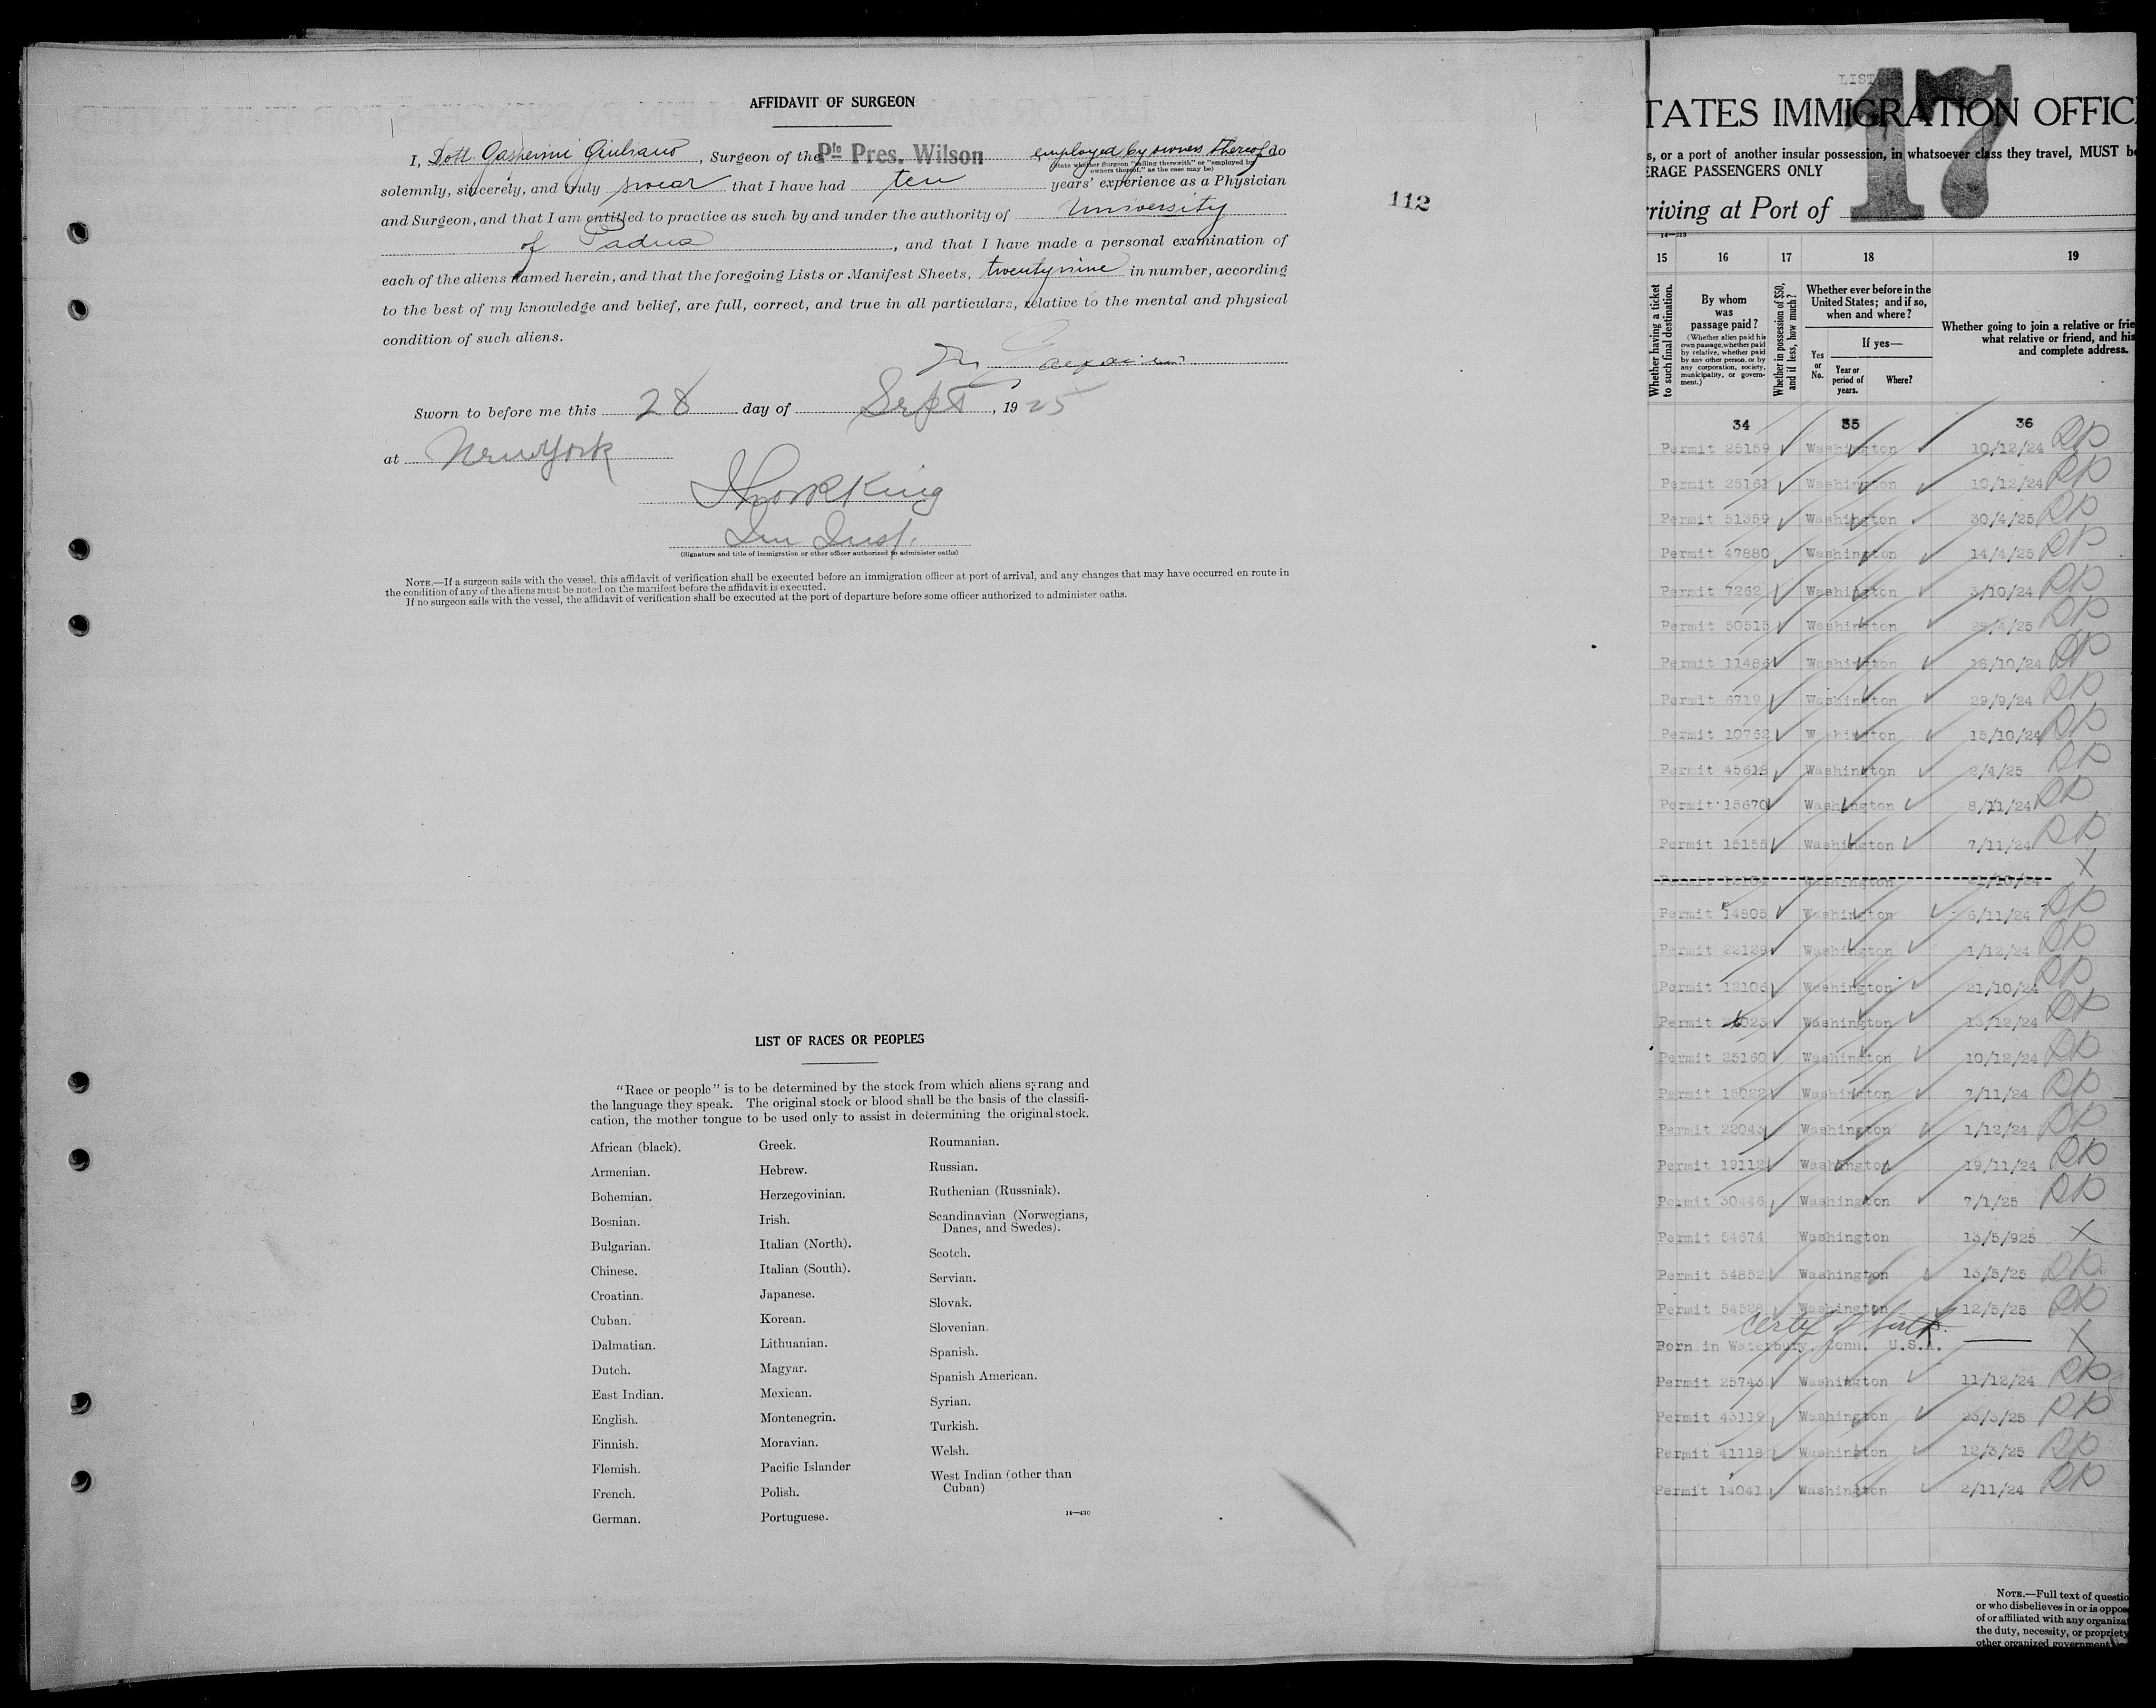 AFFIDAVIT OF SURGEON
I, Dott. Gasperini Giuliano, Surgeon of the Pfo Pres. Wilson employed by owners thereof do
(State whether Surgeon "sailing therewith" or "employed by owners thereof," as the case may be)
solemnly, sincerely, and truly swear that I have had ten years' experience as a Physician
and Surgeon, and that I am entitled to practice as such by and under the authority of University
of Padua, and that I have made a personal examination of
each of the aliens named herein, and that the foregoing Lists or Manifest Sheets, twentynine in number, according
to the best of my knowledge and belief, are full, correct, and true in all particulars, relative to the mental and physical
condition of such aliens.
Sworn to before me this 28 day of Sept, 1925
at New York
King
Imm Insp.
(Signature and title of immigration or other officer authorized to administer oaths)
NOTE.—If a surgeon sails with the vessel, this affidavit of verification shall be executed before an immigration officer at port of arrival, and any changes that may have occurred en route in
the condition of any of the aliens must be noted on the manifest before the affidavit is executed.
If no surgeon sails with the vessel, the affidavit of verification shall be executed at the port of departure before some officer authorized to administer oaths.
112
LIST OF RACES OR PEOPLES
"Race or people" is to be determined by the stock from which aliens sprang and
the language they speak. The original stock or blood shall be the basis of the classifi-
cation, the mother tongue to be used only to assist in determining the original stock.
African (black).
Armenian.
Bohemian.
Bosnian.
Bulgarian.
Chinese.
Croatian.
Cuban.
Dalmatian.
Dutch.
East Indian.
English.
Finnish.
Flemish.
French.
German.
Greek.
Hebrew.
Herzegovinian.
Irish.
Italian (North).
Italian (South).
Japanese.
Korean.
Lithuanian.
Magyar.
Mexican.
Montenegrin.
Moravian.
Pacific Islander
Polish.
Portuguese.
Roumanian.
Russian.
Ruthenian (Russniak).
Scandinavian (Norwegians,
Danes, and Swedes).
Scotch.
Servian.
Slovak.
Slovenian.
Spanish.
Spanish American.
Syrian.
Turkish.
Welsh.
West Indian (other than
Cuban)
14—430
LIST
17
TATES IMMIGRATION OFFIC
s, or a port of another insular possession, in whatsoever class they travel, MUST b
ERAGE PASSENGERS ONLY
rriving at Port of
14—213
15 16 17 18 19
Whether having a ticket
to such final destination.
By whom
was
passage paid?
(Whether alien paid his
own passage, whether paid
by relative, whether paid
by any other person, or by
any corporation, society,
municipality, or govern-
ment.)
Whether in possession of $50,
and if less, how much?
Whether ever before in the
United States; and if so,
when and where?
Yes
or
No.
If yes—
Year or
period of
years.
Where?
Whether going to join a relative or frie
what relative or friend, and his
and complete address.
34 35 36
Permit 25159 Washington 10/12/24
Permit 25161 Washington 10/12/24
Permit 51359 Washington 30/4/25
Permit 47880 Washington 14/4/25
Permit 7262 Washington 3/10/24
Permit 50515 Washington 28/4/25
Permit 11486 Washington 18/10/24
Permit 6719 Washington 29/9/24
Permit 10762 Washington 15/10/24
Permit 45618 Washington 2/4/25
Permit 15670 Washington 8/11/24
Permit 15155 Washington 7/11/24
Permit Washington 21/10/24 X
Permit 14905 Washington 6/11/24
Permit 22129 Washington 1/12/24
Permit 12106 Washington 21/10/24
Permit Washington 13/12/24
Permit 25160 Washington 10/12/24
Permit 15022 Washington 7/11/24
Permit 22043 Washington 1/12/24
Permit 19112 Washington 19/11/24
Permit 30446 Washington 7/1/25
Permit 54674 Washington 13/5/925 X
Permit 54852 Washington 13/5/25
Permit 54528 Washington 12/5/25
Certif of birth.
Born in Waterbury, Conn. U.S.A. X
Permit 25746 Washington 11/12/24
Permit 43119 Washington 23/3/25
Permit 41118 Washington 12/3/25
Permit 14041 Washington 2/11/24
NOTE.—Full text of questio
or who disbelieves in or is oppose
of or affiliated with any organizat
the duty, necessity, or propriety
other organized government